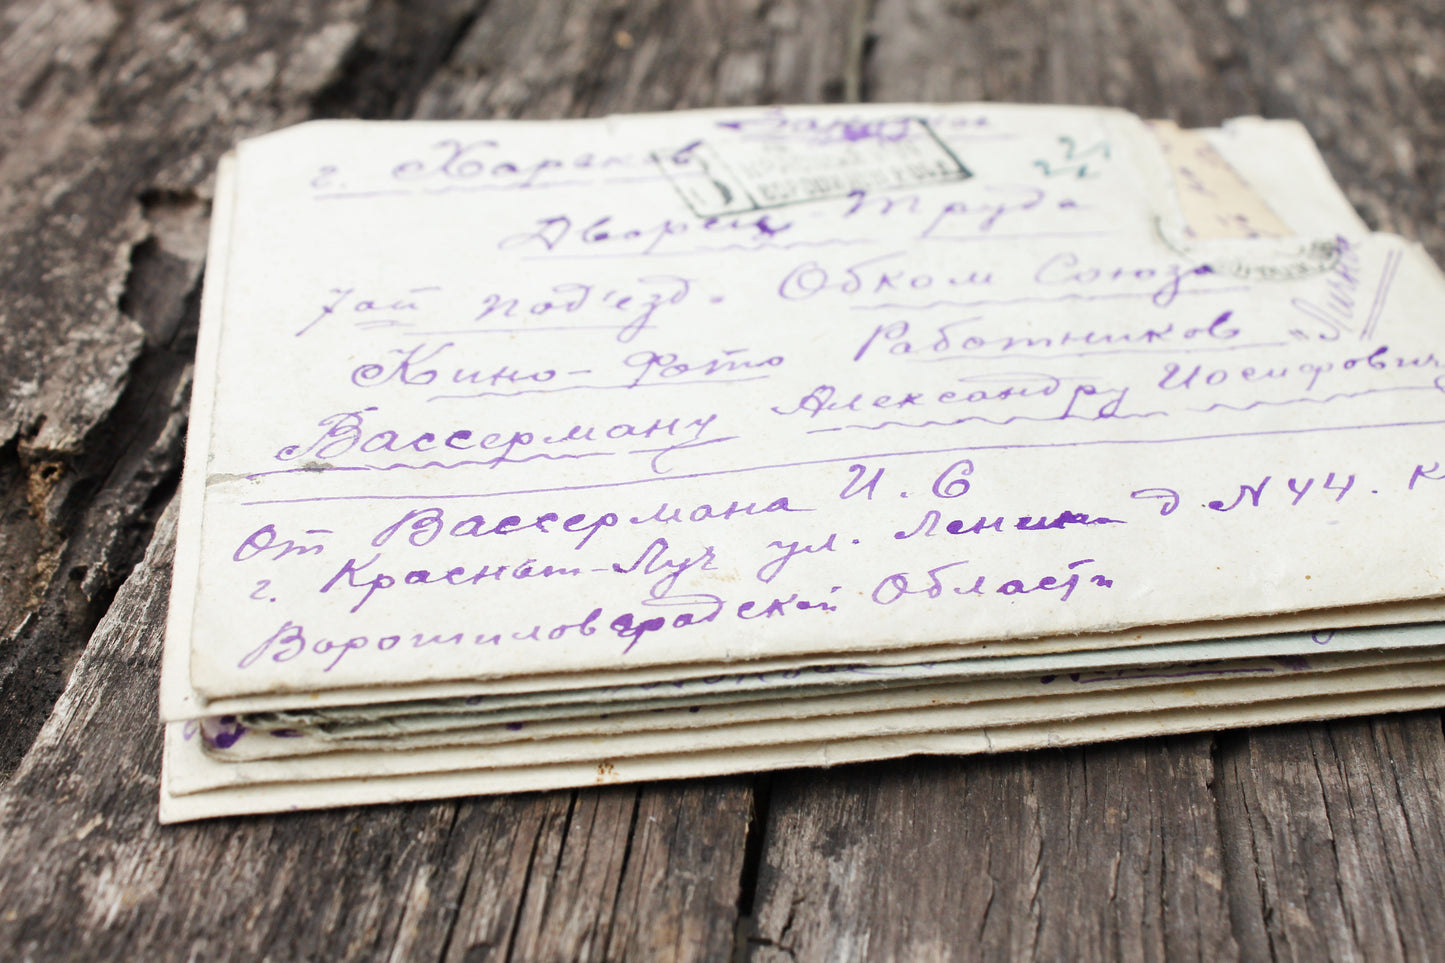 Заказн
г. Харьков
22
Дворец - Труда
7ой под'езд. Обком Союза
Кино-Фото Работников "Лично"
Вассерману Александру Иосифович
От Вассермана И. С
г. Красный-Луч ул. Ленина д N 44. К
Ворошиловградской Области